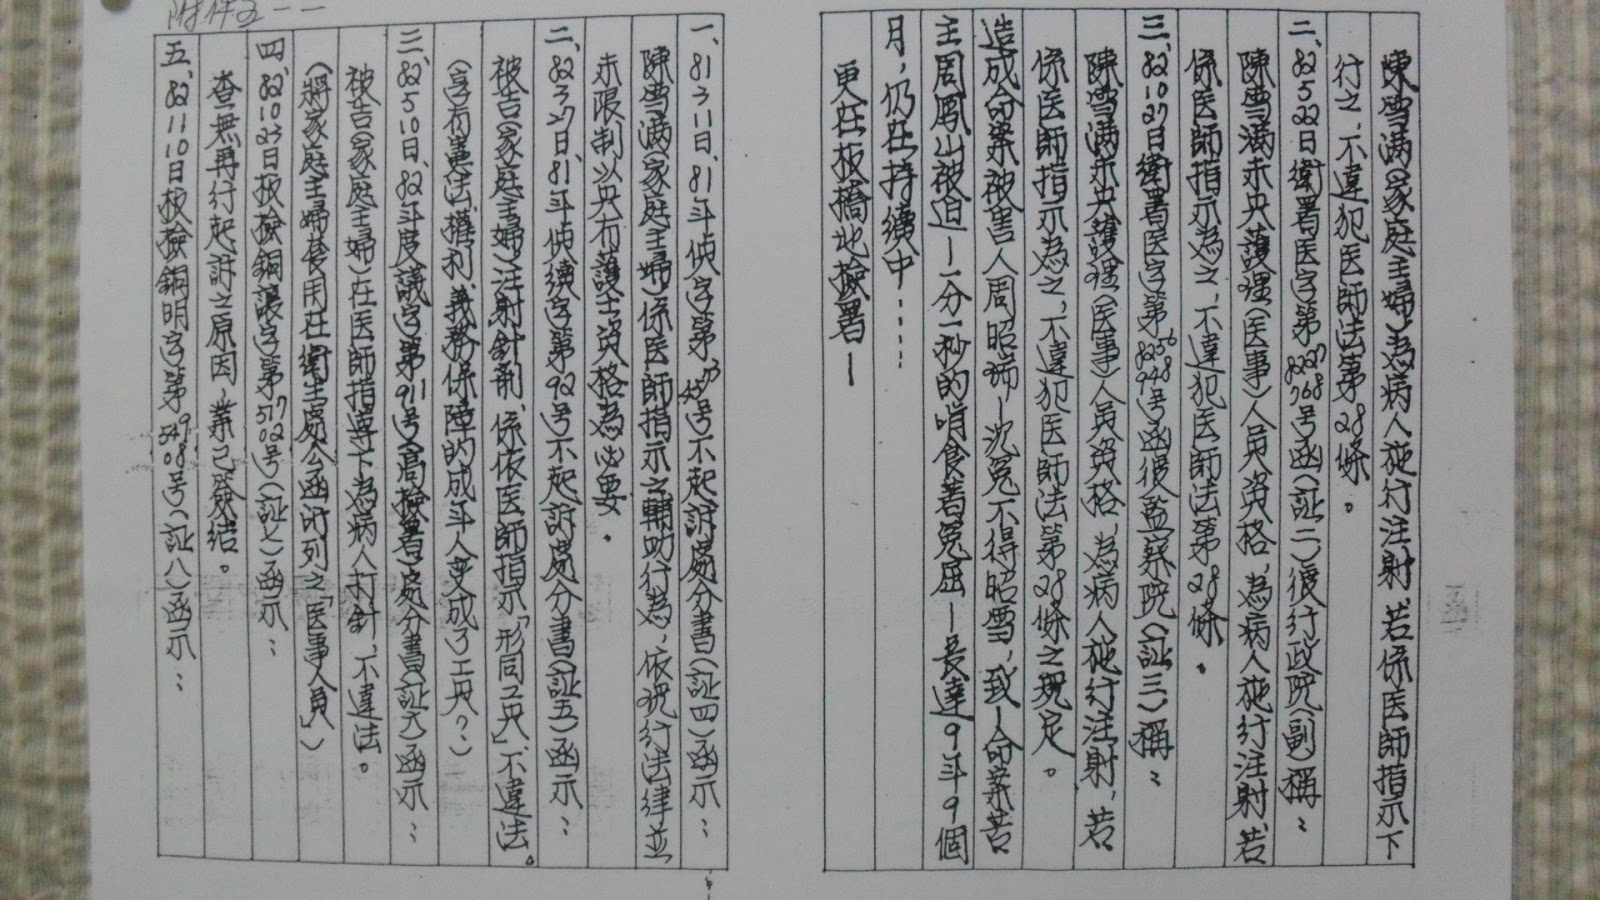 附件五-1
陳雪滿(家庭主婦)為病人施行注射,若係医師指示下
行之,不違犯医師法第28條。
二、82522日衛署医字第8227768号函(証二)復行政院(副)稱:
陳雪滿未具護理(医事)人員資格,為病人施行注射,若
係医師指示為之,不違犯医師法第28條。
三、821027日衛署医字第8256948号函復監察院(証三)稱:
陳雪滿未具護理(医事)人員資格,為病人施行注射,若
係医師指示為之,不違犯医師法第28條之規定。
造成命案被害人周昭 -沈冤不得昭雪,致-命案苦
主周鳳山被迫-一分一秒的啃食著冤屈-長達9年9個
月,仍在持續中……
更在板橋地檢署-
一、81311日、81年偵字第 号不起訴處分書(証四)函示:
陳雪滿(家庭主婦)係医師指示之輔助行為,依現行法律並
未限制以具有護士資格為必要。
二、82327日、81年偵續字第92号不起訴處分書(証五)函示:
被告(家庭主婦)注射針劑,係依医師指示「形同工具」,不違法。
(享有憲法、權利、義務保障的成年人变成了工具?)
三、82510日、82年度議字第911号(高檢署)處分書(証六)函示:
被告(家庭主婦)在医師指導下為病人打針,不違法。
(將家庭主婦套用在衛生處公函所列之「医事人員」)
四、821023日板檢銅讓字第51702号(証七)函示:
查無再行起訴之原因,業已簽結。
五、821110日板檢銅明字第54908号(証八)函示: